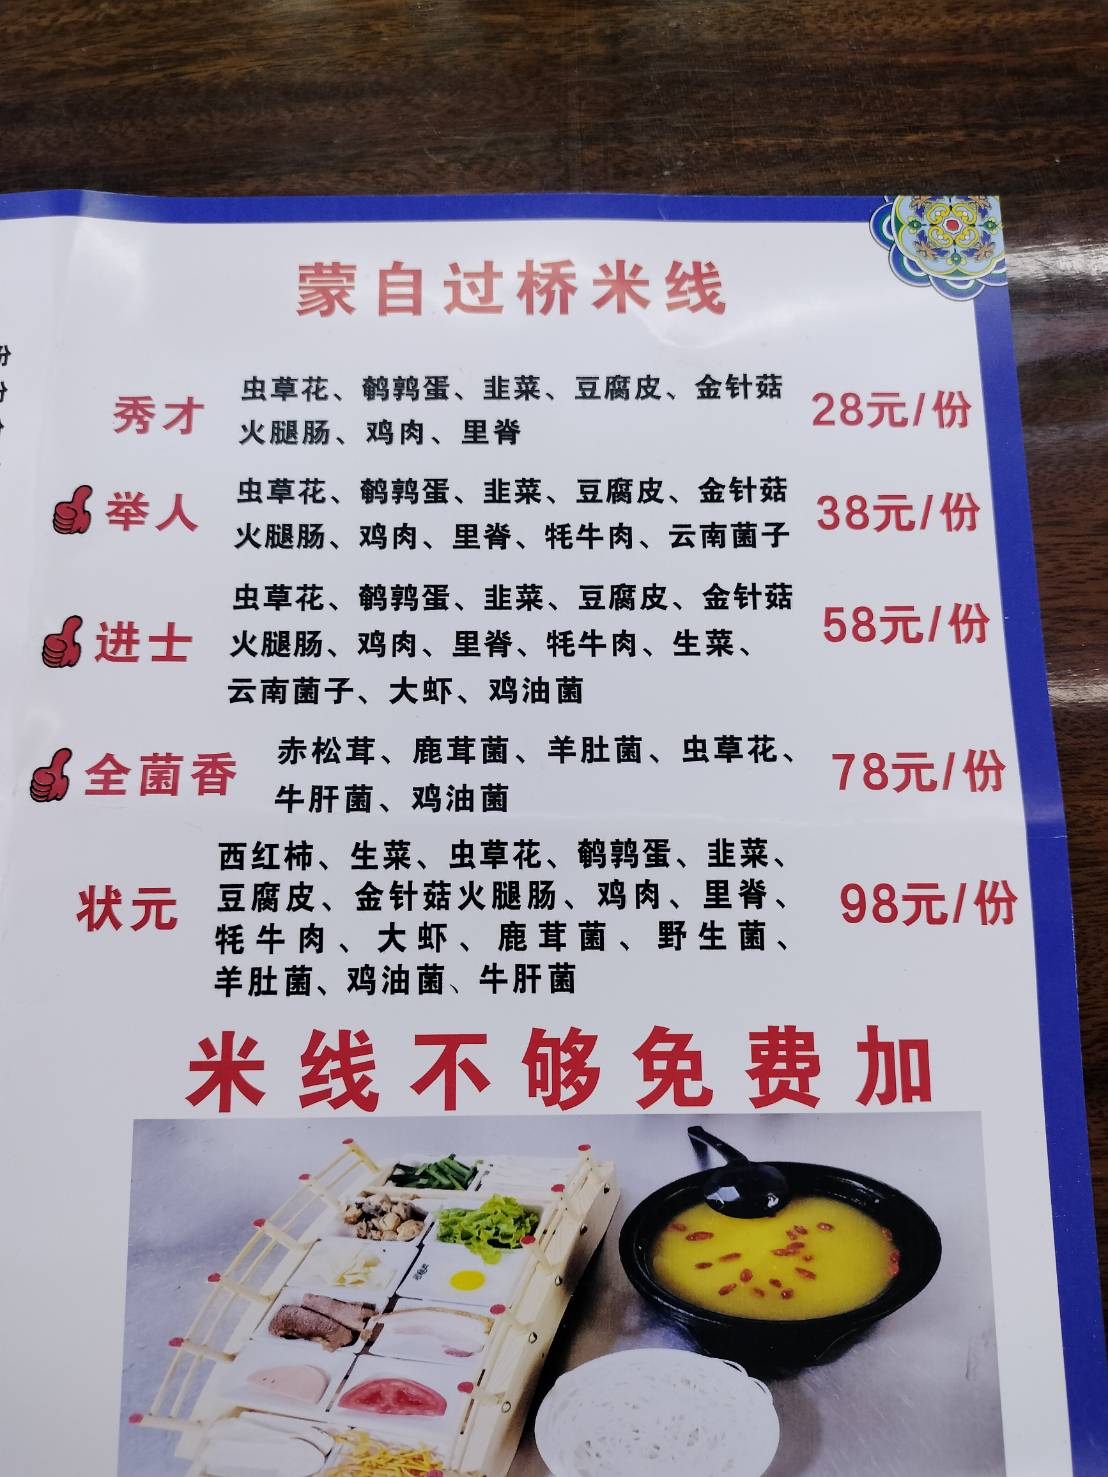 蒙自过桥米线
秀才
虫草花、鹌鹑蛋、韭菜、豆腐皮、金针菇
火腿肠、鸡肉、里脊
28元/份
举人
虫草花、鹌鹑蛋、韭菜、豆腐皮、金针菇
火腿肠、鸡肉、里脊、牦牛肉、云南菌子
38元/份
进士
虫草花、鹌鹑蛋、韭菜、豆腐皮、金针菇
火腿肠、鸡肉、里脊、牦牛肉、生菜、
云南菌子、大虾、鸡油菌
58元/份
全菌香
赤松茸、鹿茸菌、羊肚菌、虫草花、
牛肝菌、鸡油菌
78元/份
状元
西红柿、生菜、虫草花、鹌鹑蛋、韭菜、
豆腐皮、金针菇火腿肠、鸡肉、里脊、
牦牛肉、大虾、鹿茸菌、野生菌、
羊肚菌、鸡油菌、牛肝菌
98元/份
米线不够免费加